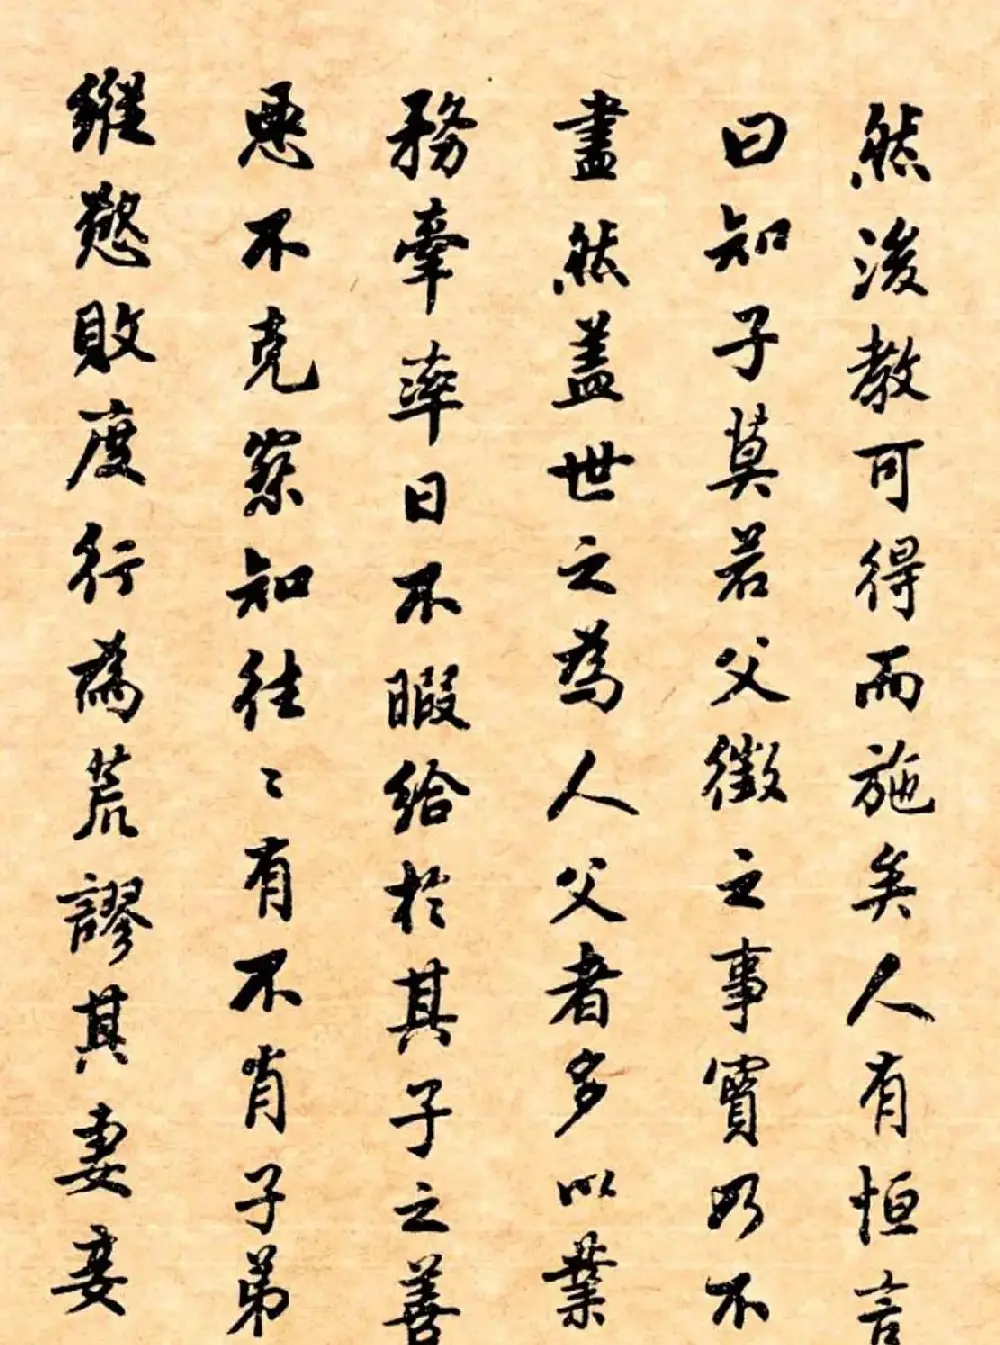 然後教可得而施矣人有恒言
曰知子莫若父徵之事實乃不
盡然蓋世之為人父者多以業
務牽率日不暇給於其子之善
惡不克察知往〻有不肖子弟
縱慾敗度行為荒謬其妻妾